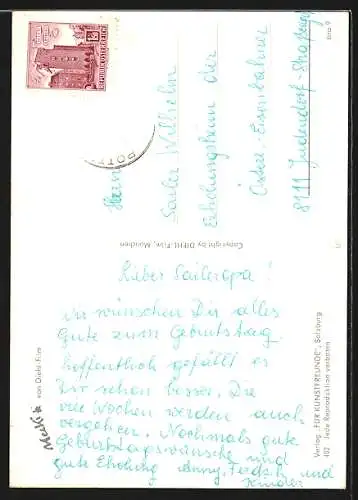 Herrn
Sailer Wilhelm
Erholungsheim der
Österr. Eisenbahner
8111 Judendorf-Straßengel
REPUBLIK ÖSTERREICH
Copyright by DIEHL-Film, München
Lieber Saileropa!
Wir wünschen Dir alles
Gute zum Geburtstag.
hoffentlich gefällt es
Dir schon besser. Die
vier Wochen werden auch
vergehen. Nochmals gute
Geburtstagswünsche und
gute Erholung Anny, Ferdl und
Kinder
Mecki
von Diehl-Film
Verlag „FÜR KUNSTFREUNDE“, Salzburg
402 Jede Reproduktion verboten